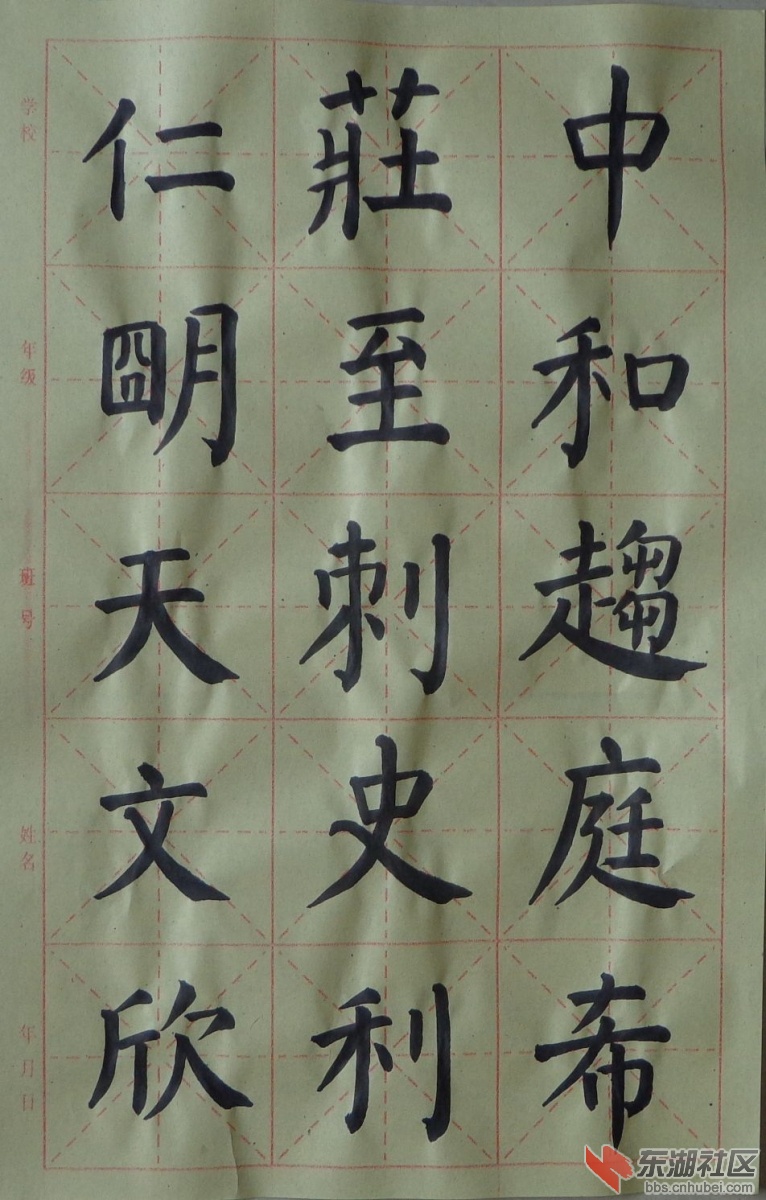 中和趨庭希
莊至刺史利
仁朙天文欣
学校 年级 班号 姓名 年月日
东湖社区
bbs.cnhubei.com